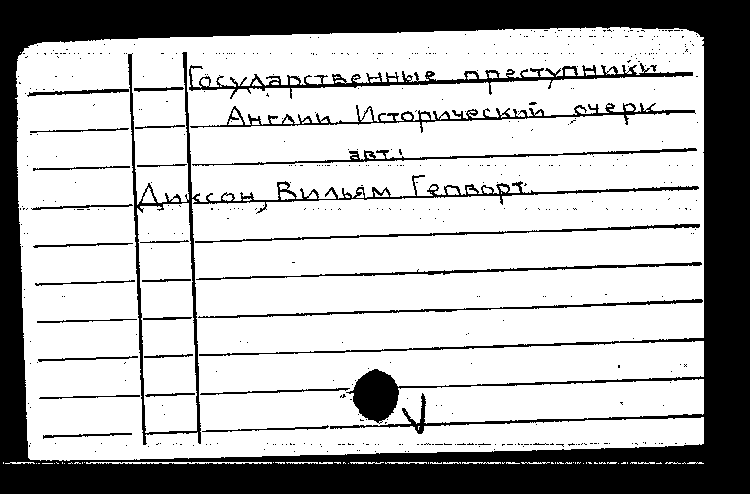 Государственные преступники
Англии. Исторический очерк.
авт.:
Диксон, Вильям Гепворт.